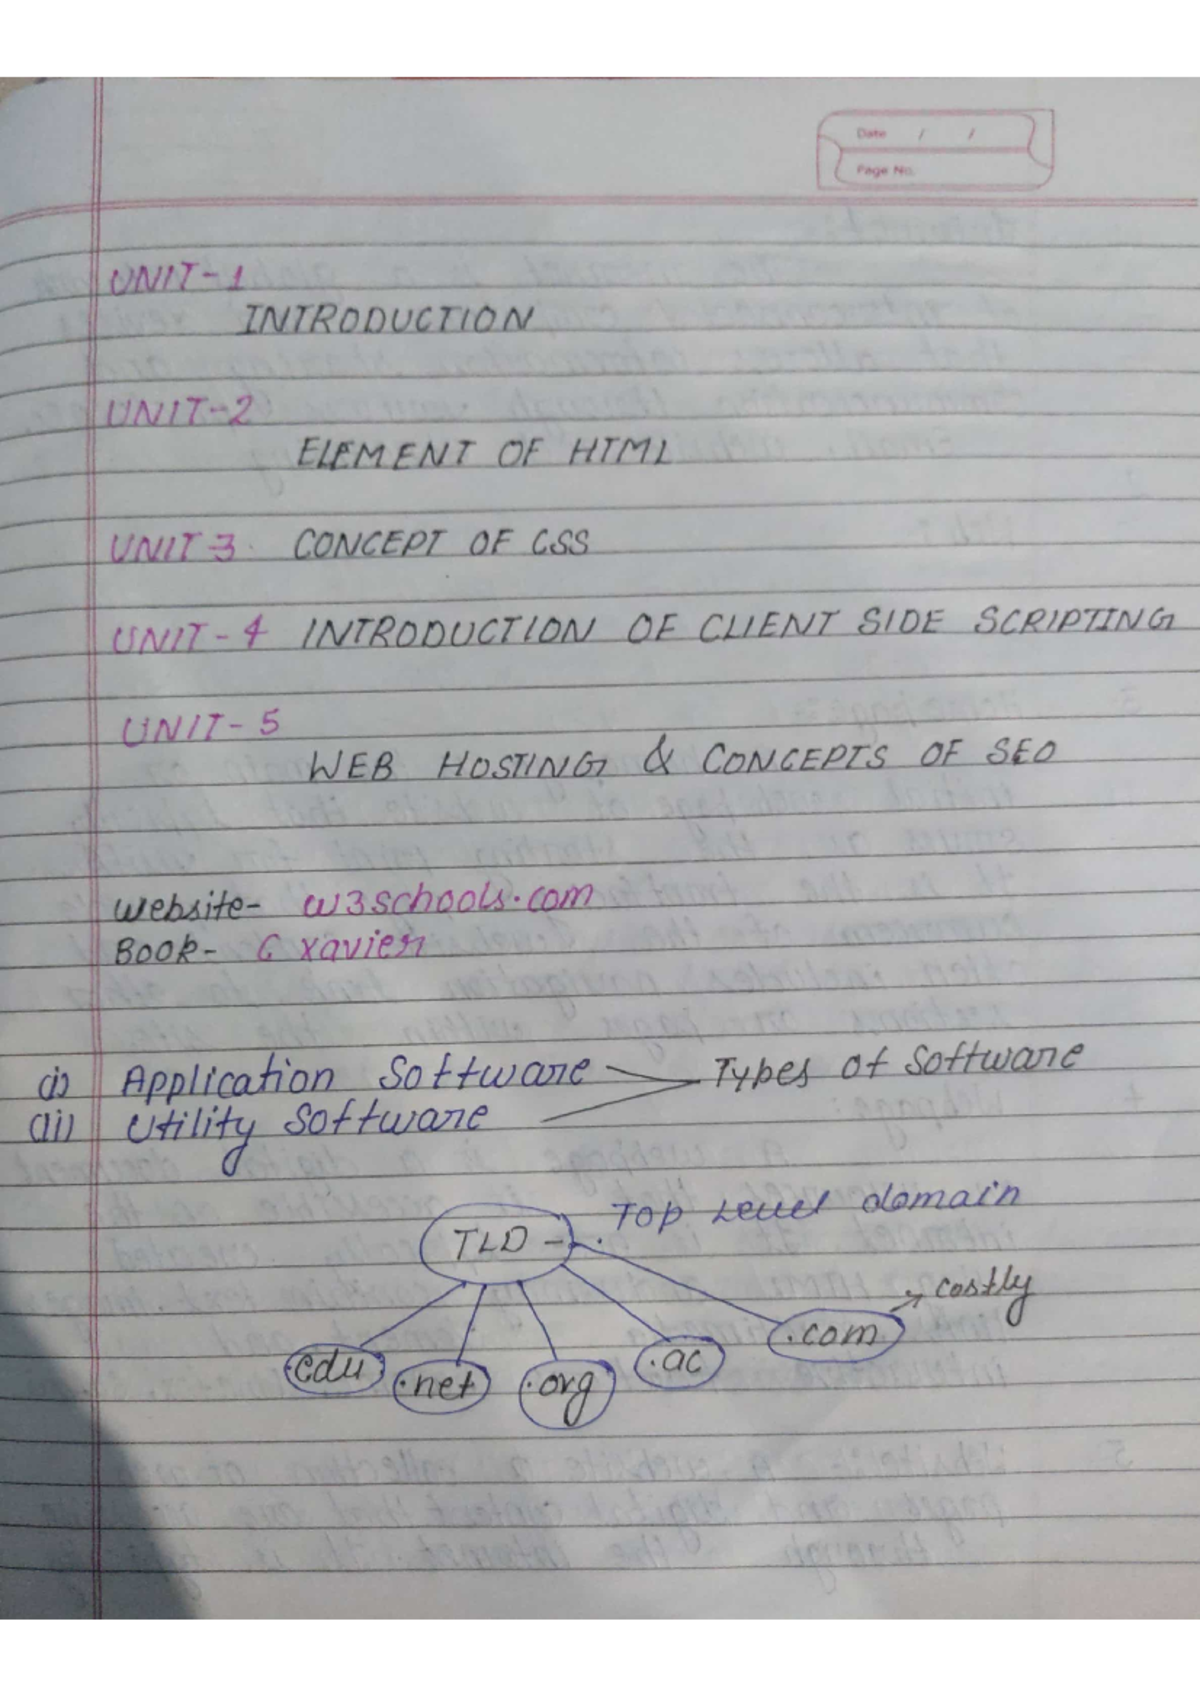 Date / /
Page No.
UNIT-1
INTRODUCTION
UNIT-2
ELEMENT OF HTML
UNIT-3. CONCEPT OF CSS
UNIT-4 INTRODUCTION OF CLIENT SIDE SCRIPTING
UNIT-5
WEB HOSTING & CONCEPTS OF SEO
Website- w3schools.com
Book- C Xavier
(i) Application Software Types of Software
(ii) Utility Software
TLD - . Top Level domain
.com → costly
.edu .net .org .ac